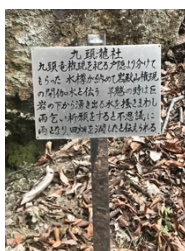 九頭龍社
九頭竜権現を祀る戸隠より分けて
もらった 水樽が始めで岩殿山権現
の閼伽水と伝う 旱魃の時は巨
岩の下から湧き出る水を掻きまわし
雨乞い祈願をすると不思議に
雨となり 田畑を潤したと伝えられる